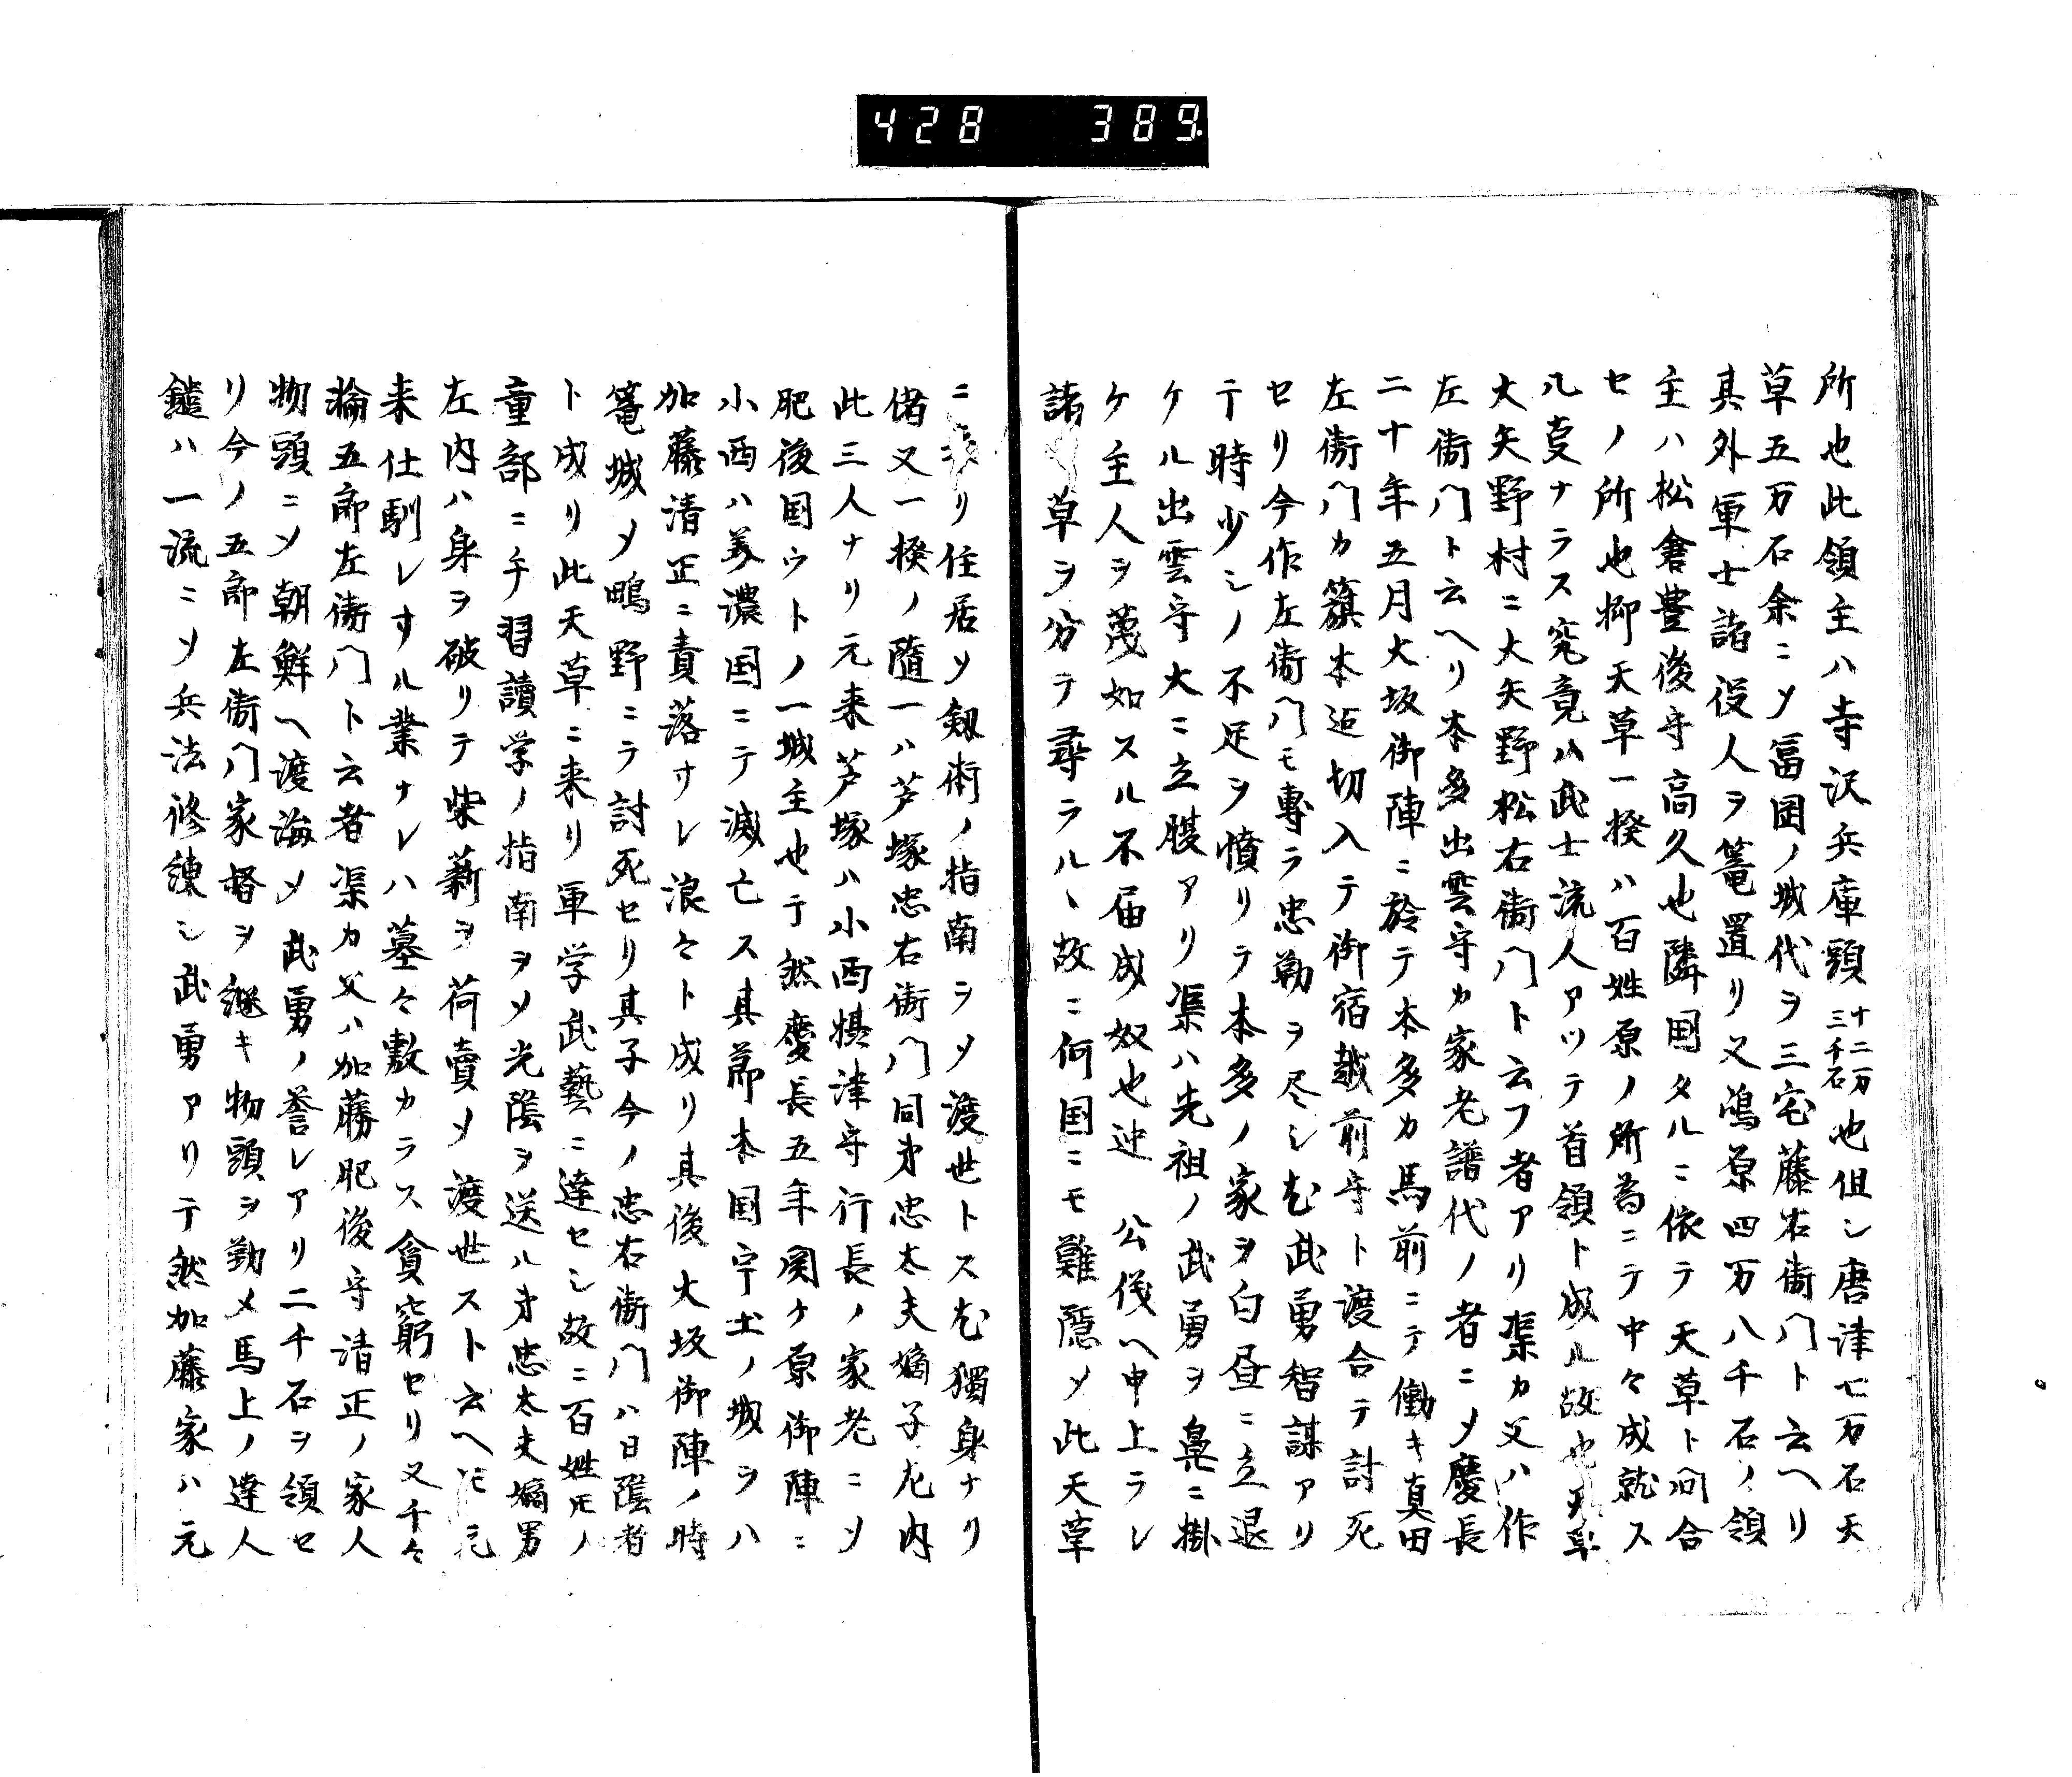 428 389
所也此領主ハ寺沢兵庫頭十二万三千石也但シ唐津七万石天
草五万石余ニメ冨岡ノ城代ヲ三宅藤右衛門ト云ヘリ
其外軍士諸役人ヲ篭置リ又嶋原四万八千石ノ領
主ハ松倉豊後守高久也隣国タルニ依テ天草ト向合
セノ所也抑天草一揆ハ百姓原ノ所為ニテ中々成就ス
ル叓ナラス究竟ハ武士流人アツテ首領ト成ル故也天草
大矢野村ニ大矢野松右衛門ト云フ者アリ渠カ父ハ作
左衛門ト云ヘリ本多出雲守カ家老譜代ノ者ニメ慶長
二十年五月大坂御陣ニ於テ本多カ馬前ニテ働キ真田
左衛門カ籏本迠切入テ御宿越前守ト渡合テ討死
セリ今作左衛門モ專ラ忠勤ヲ尽シ尤武勇智謀アリ
テ時少シノ不足ヲ憤リテ本多ノ家ヲ白昼ニ立退
ケル出雲守大ニ立腹アリ渠ハ先祖ノ武勇ヲ鼻ニ掛
ケ主人ヲ蔑如スル不届成奴也迚 公儀ヘ申上ラレ
諸 草ヲ分テ尋ラルヽ故ニ何国ニモ難隠メ此天草
ニ リ住居メ劔術ノ指南ヲメ渡世トス尤獨身ナリ
偖又一揆ノ隨一ハ芦塚忠右衛門同弟忠太夫嫡子左内
此三人ナリ元来芦塚ハ小西摂津守行長ノ家老ニメ
肥後国ウトノ一城主也テ然慶長五年関ケ原御陣ニ
小西ハ美濃国ニテ滅亡ス其節本国宇土ノ城ヲハ
加藤清正ニ責落サレ浪々ト成リ其後大坂御陣ノ時
篭城メ鴫野ニテ討死セリ其子今ノ忠右衛門ハ日陰者
ト成リ此天草ニ来リ軍学武藝ニ達セシ故ニ百姓トモノ
童部ニ手習讀学ノ指南ヲメ光陰ヲ送ル弟忠太夫嫡男
左内ハ身ヲ破リテ柴薪ヲ荷賣メ渡世スト云ヘトモ元
来仕馴レサル業ナレハ墓々敷カラス貪窮セリ又千々
輪五郎左衛門ト云者渠カ父ハ加藤肥後守清正ノ家人
物頭ニメ朝鮮ヘ渡海メ武勇ノ誉レアリ二千石ヲ領セ
リ今ノ五郎左衛門家督ヲ継キ物頭ヲ勤メ馬上ノ達人
鑓ハ一流ニメ兵法修練シ武勇アリテ然加藤家ハ元